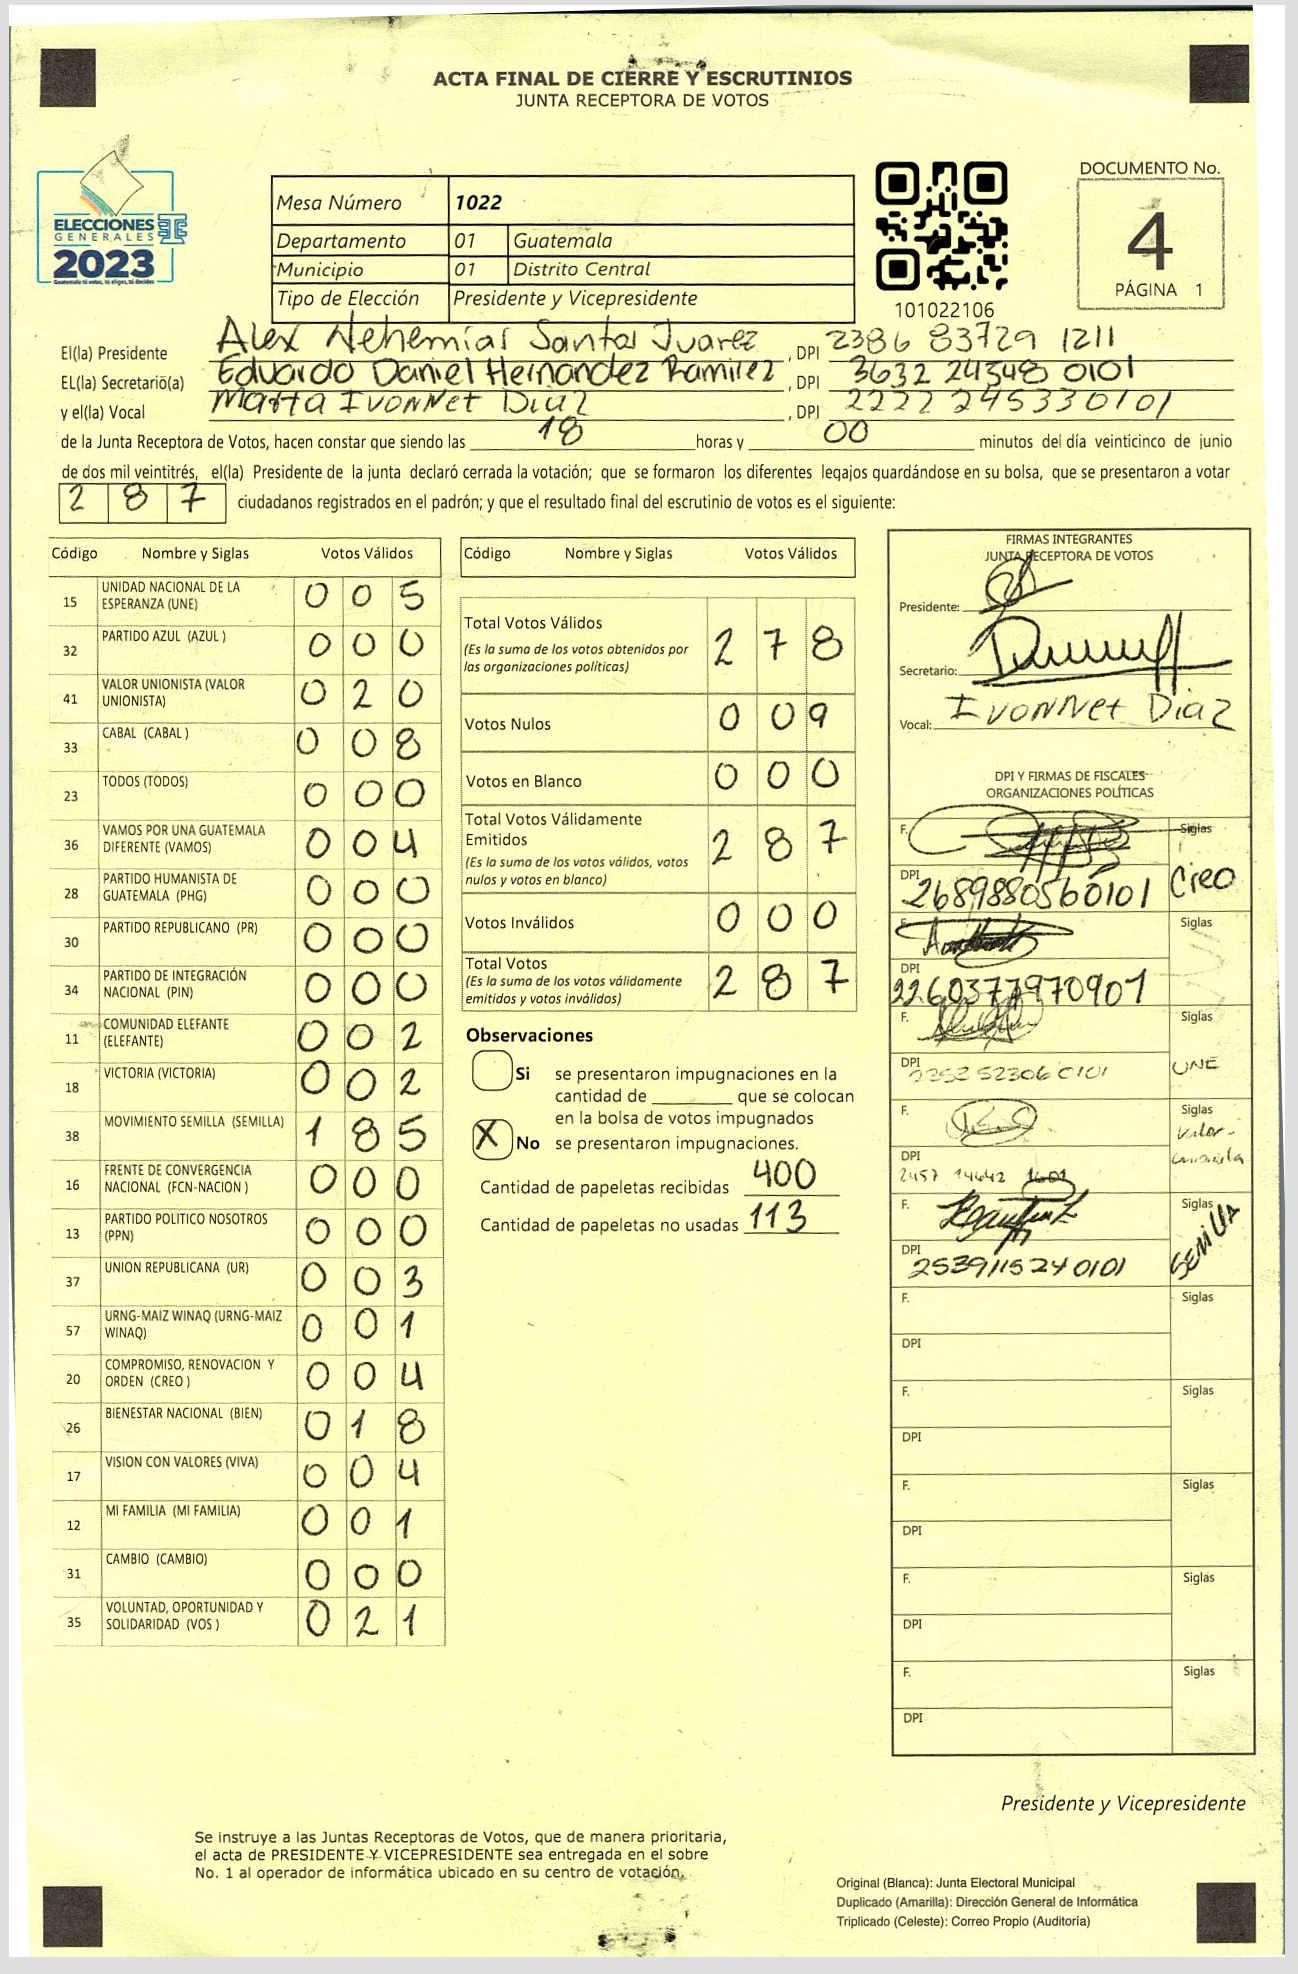 ACTA FINAL DE CIERRE Y ESCRUTINIOS
JUNTA RECEPTORA DE VOTOS
ELECCIONES
GENERALES
2023
Guatemala tú votas, tú eliges, tú decides
Mesa Número 1022
Departamento 01 Guatemala
Municipio 01 Distrito Central
Tipo de Elección Presidente y Vicepresidente
101022106
DOCUMENTO No.
4
PÁGINA 1
El(la) Presidente Alex Nehemías Santos Juarez, DPI 2386 83729 1211
EL(la) Secretario(a) Eduardo Daniel Hernandez Ramirez, DPI 3632 24348 0101
y el(la) Vocal Marta Ivonnet Diaz, DPI 2222 24533 0101
de la Junta Receptora de Votos, hacen constar que siendo las 18 horas y 00 minutos del día veinticinco de junio
de dos mil veintitrés, el(la) Presidente de la junta declaró cerrada la votación; que se formaron los diferentes legajos guardándose en su bolsa, que se presentaron a votar
2 8 7 ciudadanos registrados en el padrón; y que el resultado final del escrutinio de votos es el siguiente:
Código Nombre y Siglas Votos Válidos
15 UNIDAD NACIONAL DE LA ESPERANZA (UNE) 0 0 5
32 PARTIDO AZUL (AZUL ) 0 0 0
41 VALOR UNIONISTA (VALOR UNIONISTA) 0 2 0
33 CABAL (CABAL ) 0 0 8
23 TODOS (TODOS) 0 0 0
36 VAMOS POR UNA GUATEMALA DIFERENTE (VAMOS) 0 0 4
28 PARTIDO HUMANISTA DE GUATEMALA (PHG) 0 0 0
30 PARTIDO REPUBLICANO (PR) 0 0 0
34 PARTIDO DE INTEGRACIÓN NACIONAL (PIN) 0 0 0
11 COMUNIDAD ELEFANTE (ELEFANTE) 0 0 2
18 VICTORIA (VICTORIA) 0 0 2
38 MOVIMIENTO SEMILLA (SEMILLA) 1 8 5
16 FRENTE DE CONVERGENCIA NACIONAL (FCN-NACION ) 0 0 0
13 PARTIDO POLITICO NOSOTROS (PPN) 0 0 0
37 UNION REPUBLICANA (UR) 0 0 3
57 URNG-MAIZ WINAQ (URNG-MAIZ WINAQ) 0 0 1
20 COMPROMISO, RENOVACION Y ORDEN (CREO ) 0 0 4
26 BIENESTAR NACIONAL (BIEN) 0 1 8
17 VISION CON VALORES (VIVA) 0 0 4
12 MI FAMILIA (MI FAMILIA) 0 0 1
31 CAMBIO (CAMBIO) 0 0 0
35 VOLUNTAD, OPORTUNIDAD Y SOLIDARIDAD (VOS ) 0 2 1
Código Nombre y Siglas Votos Válidos
Total Votos Válidos 2 7 8
(Es la suma de los votos obtenidos por
las organizaciones políticas)
Votos Nulos 0 0 9
Votos en Blanco 0 0 0
Total Votos Válidamente
Emitidos 2 8 7
(Es la suma de los votos válidos, votos
nulos y votos en blanco)
Votos Inválidos 0 0 0
Total Votos 2 8 7
(Es la suma de los votos válidamente
emitidos y votos inválidos)
Observaciones
Si se presentaron impugnaciones en la
cantidad de ________ que se colocan
en la bolsa de votos impugnados
X No se presentaron impugnaciones.
Cantidad de papeletas recibidas 400
Cantidad de papeletas no usadas 113
FIRMAS INTEGRANTES
JUNTA RECEPTORA DE VOTOS
Presidente:
Secretario:
Vocal: Ivonnet Diaz
DPI Y FIRMAS DE FISCALES
ORGANIZACIONES POLÍTICAS
F. Siglas
DPI 2689880560101 Creo
F. Siglas
DPI 2260377970901
F. Siglas
DPI 2352 52306 0101 UNE
F. Siglas
Valor
DPI
2457 14642
F. Siglas
DPI 2539115240101 SEMILLA
F. Siglas
DPI
F. Siglas
DPI
F. Siglas
DPI
F. Siglas
DPI
F. Siglas
DPI
Presidente y Vicepresidente
Se instruye a las Juntas Receptoras de Votos, que de manera prioritaria,
el acta de PRESIDENTE Y VICEPRESIDENTE sea entregada en el sobre
No. 1 al operador de informática ubicado en su centro de votación.
Original (Blanca): Junta Electoral Municipal
Duplicado (Amarilla): Dirección General de Informática
Triplicado (Celeste): Correo Propio (Auditoría)